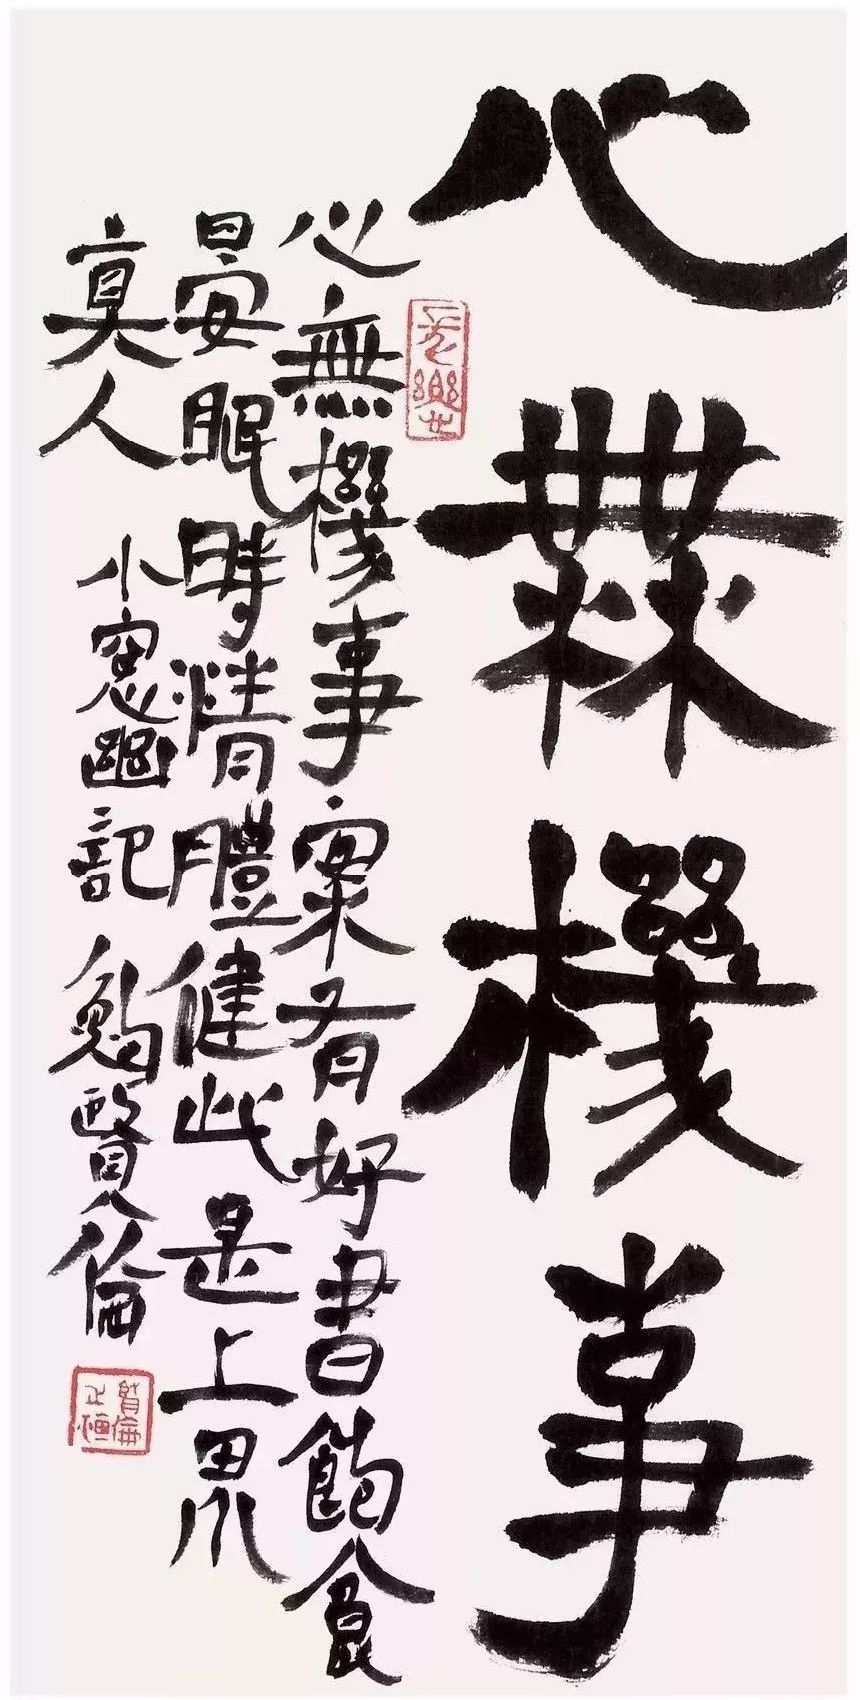 心無機事
心無機事案有好書飽食
晏眠時清體健此是上界
真人
小窓幽記 鮑賢倫